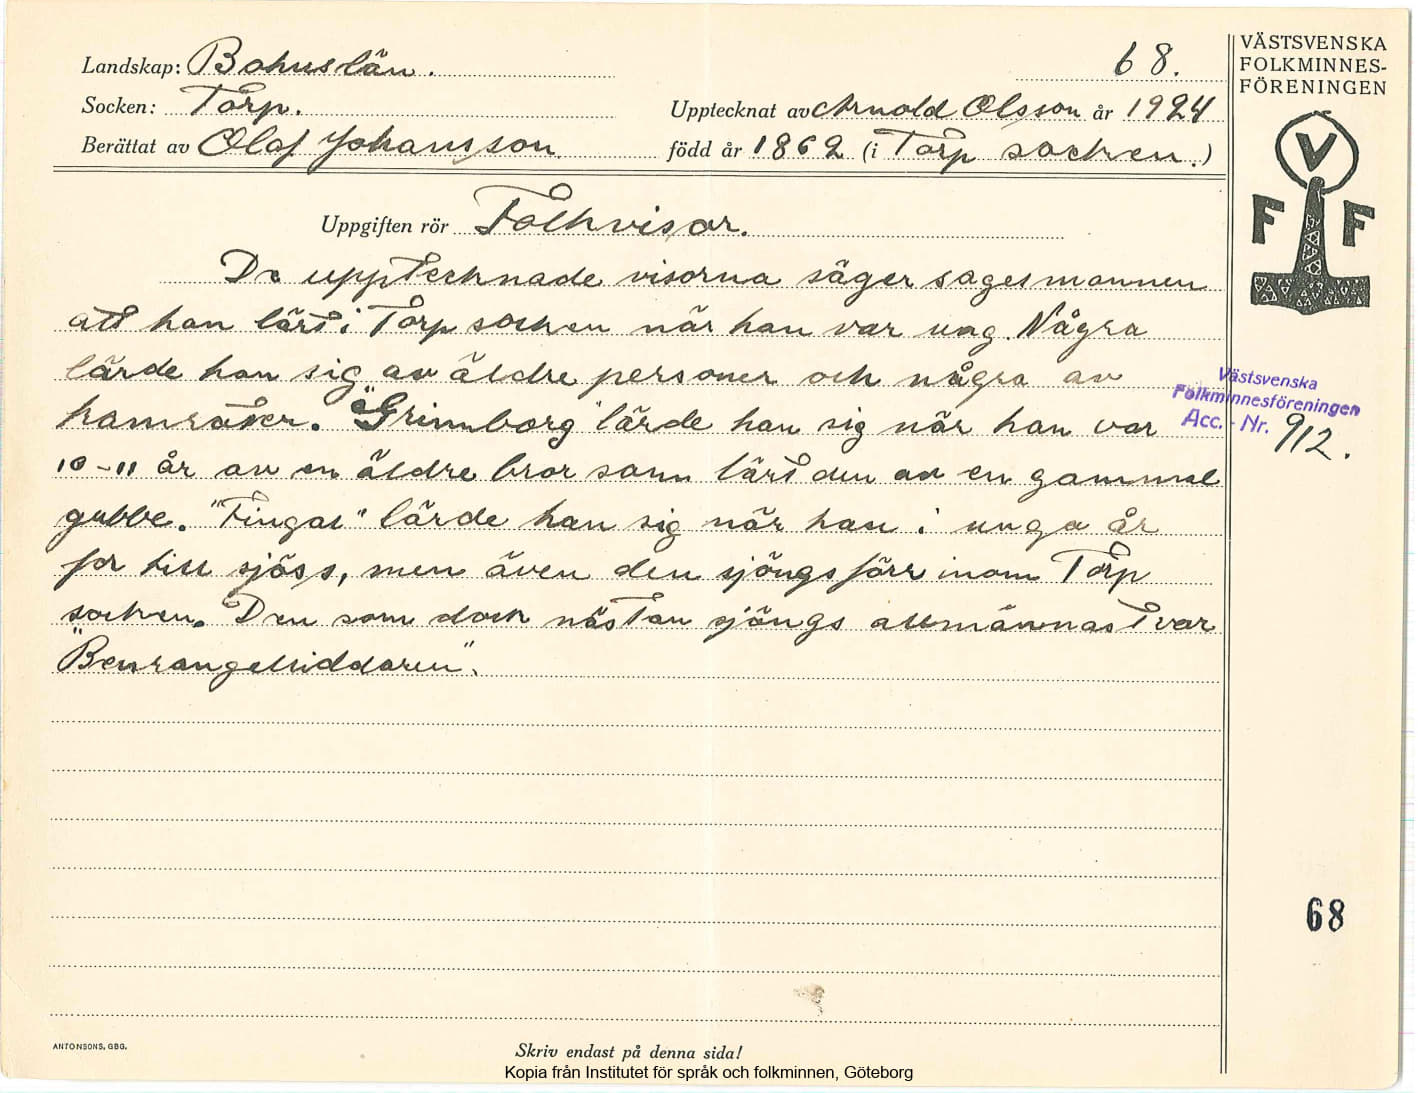 Landskap: Bohuslän. 68.
Socken: Torp. Upptecknat av Arnold Olsson år 1924
Berättat av Olaf Johansson född år 1862 (i Torp socken.)
Uppgiften rör Folkvisor.
De upptecknade visorna säger sagesmannen
att han lärt i Torp socken när han var ung. Några
lärde han sig av äldre personer och några av
kamrater. "Grimborg" lärde han sig när han var
10-11 år av en äldre bror som lärt den av en gammal
gubbe. "Fingal" lärde han sig när han i unga år
for till sjöss, men även den sjöngs förr inom Torp
socken. Den som dock nästan sjöngs allmännast var
"Benrangelriddaren".
VÄSTSVENSKA
FOLKMINNES-
FÖRENINGEN
V
F F
Västsvenska
Folkminnesföreningen
Acc. - Nr. 912.
68
ANTONSONS, GBG.
Skriv endast på denna sida!
Kopia från Institutet för språk och folkminnen, Göteborg